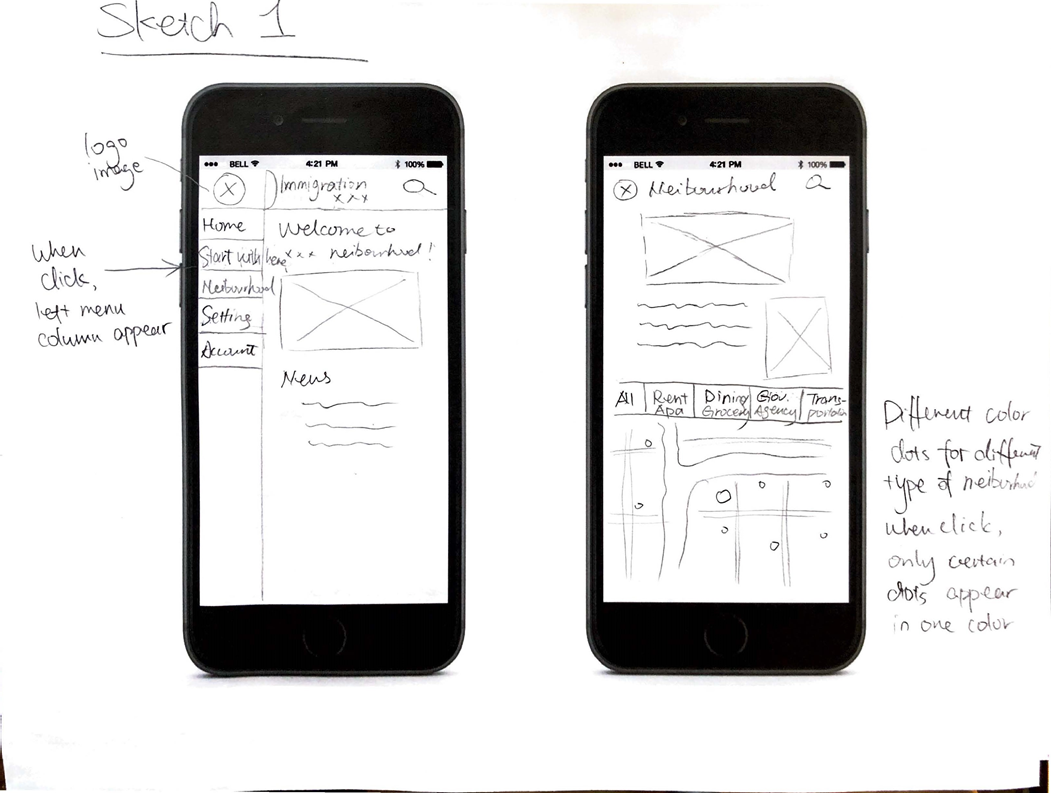 Sketch 1
logo
image
When
click,
Left menu
column appear
BELL 4:21 PM 100%
Immigration
xxx
Home
Start with here
Neibourhood
Setting
Account
Welcome to
xxx neibourhood!
News
BELL 4:21 PM 100%
Neibourhood
All
Rent
Apa
Dining
Grocery
Gov.
Agency
Trans-
portation
Different color
dots for different
type of neibourhood
when click,
only certain
dots appear
in one color